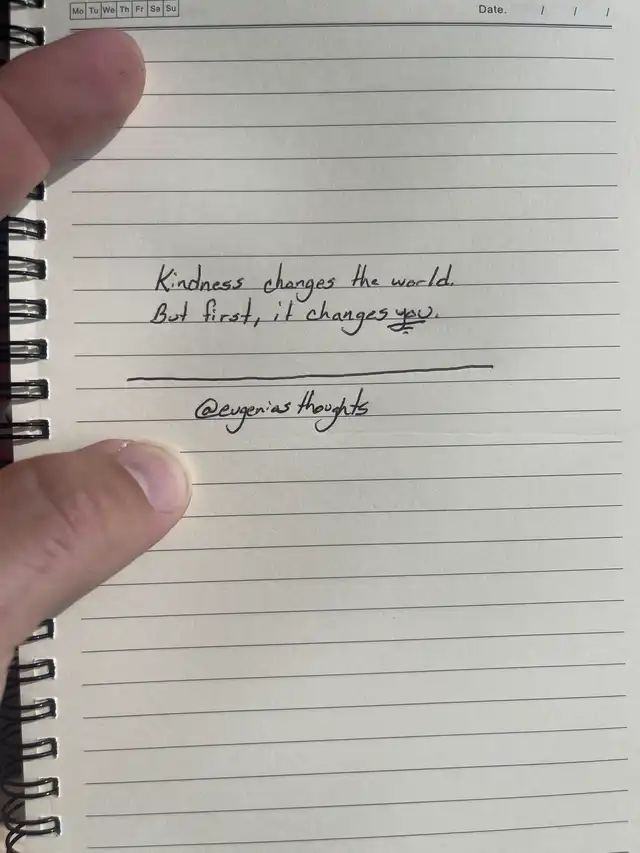 Mo Tu We Th Fr Sa Su
Date. / / /
Kindness changes the world.
But first, it changes you.
@eugenias thoughts